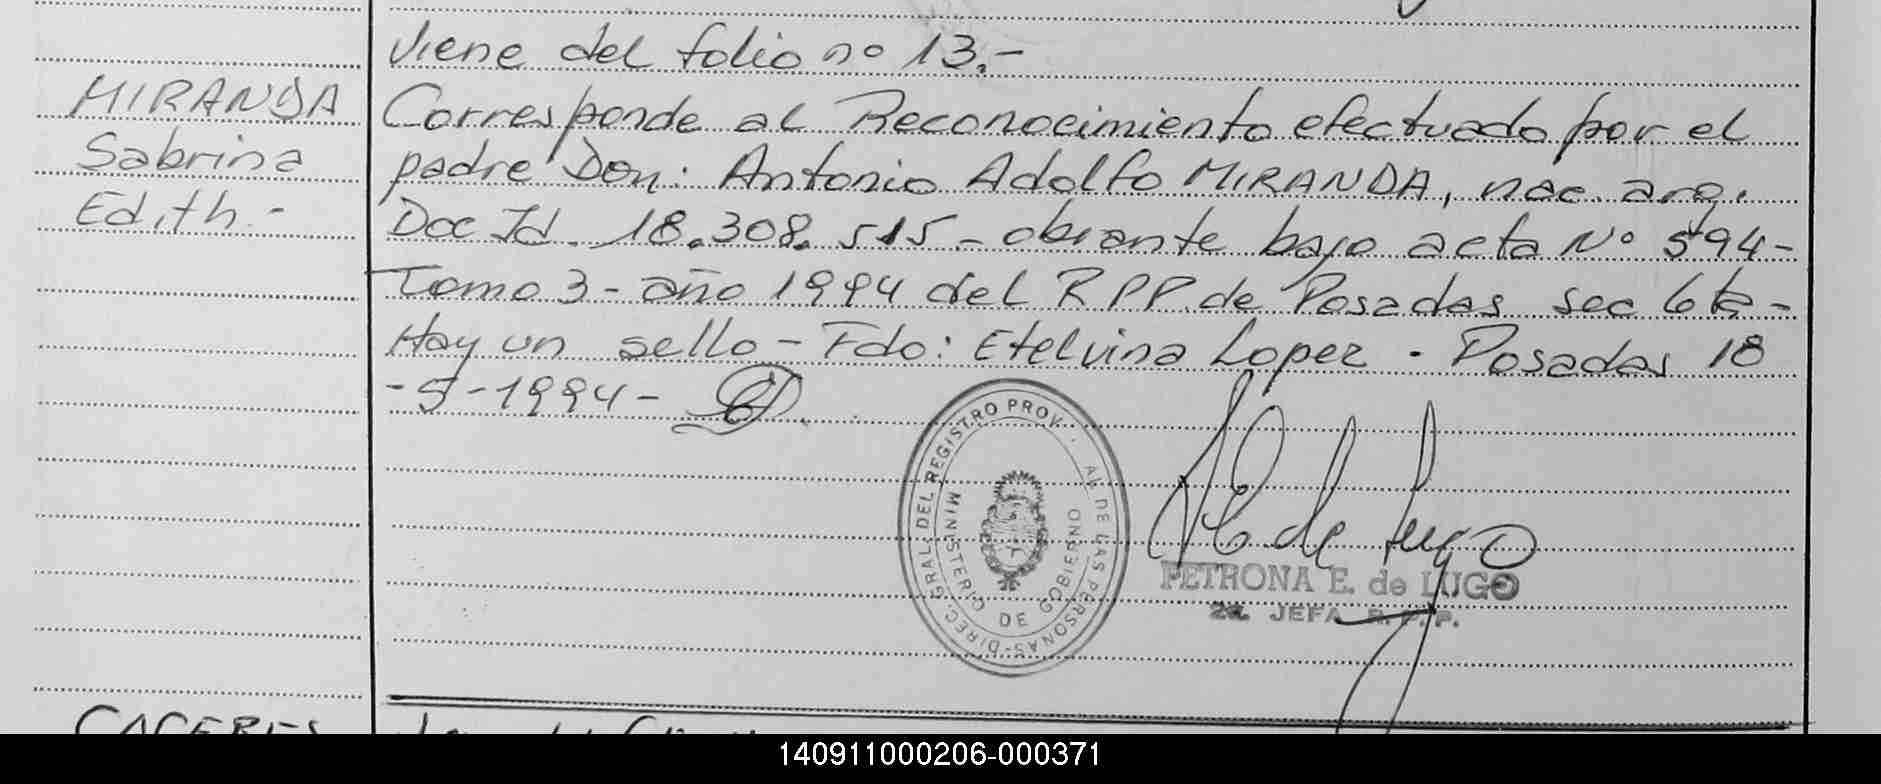 viene del folio nº 13.-
MIRANDA
Sabrina
Edith.-
Corresponde al Reconocimiento efectuado por el
padre Don: Antonio Adolfo MIRANDA, nac. arg.
Doc Id. 18.308.515 - obrante bajo acta Nº 594-
Tomo 3 - año 1994 del RPP. de Posadas sec 6ta-
Hay un sello - Fdo: Etelvina Lopez. Posadas 18
-5-1994-
DIREC. GRAL. DEL REGISTRO PROV. AL DE LAS PERSONAS-
MINISTERIO DE GOBIERNO
de Lugo
PETRONA E. de LUGO
2a. JEFA R.P.P.
CACERES
140911000206-000371